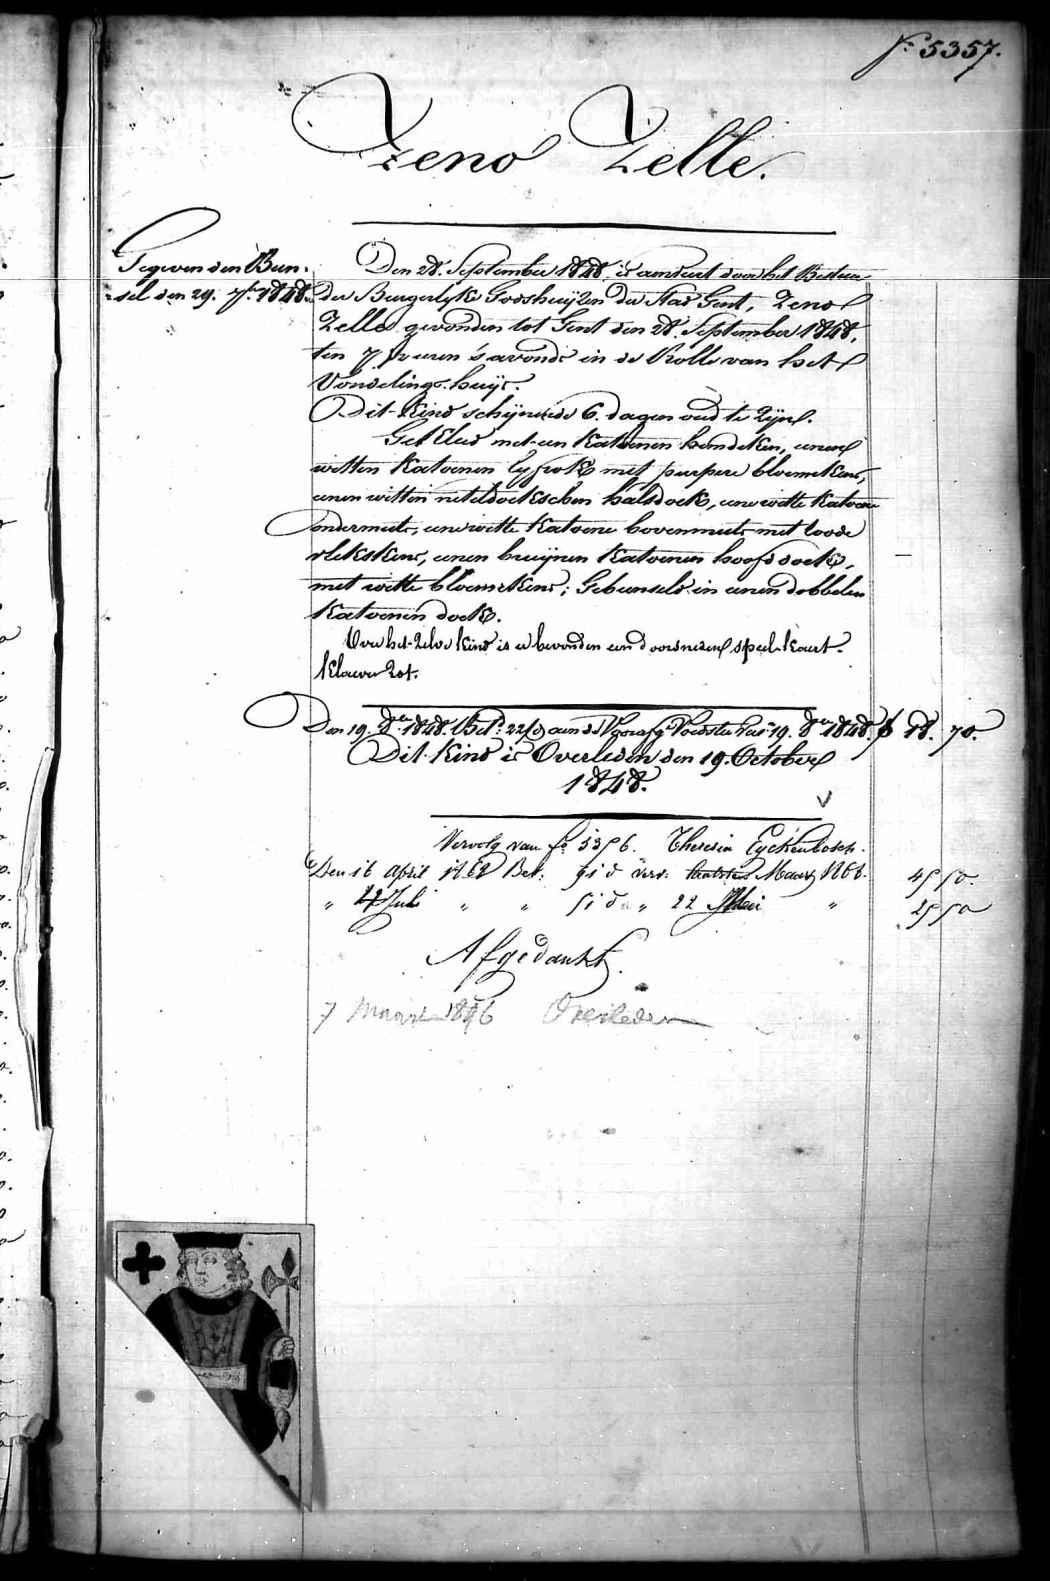 f° 5357.
Zeno Zelle.
Gegeven den Bun-
sel den 29. 7bre 1848.
Den 28. September 1848. is aenveert door het Bestuer
der Burgerlyke Godshuyzen der Stad Gent, Zeno
Zelle gevonden tot Gent den 28. September 1848,
ten 7 1/2 uren 's avonds in de Rolle van het
Vondelings-huys.
Dit Kind schynende 6. dagen oud te zyn.
Gekleed met een katoenen hemdeken, eenen
witten katoenen lyfrok met purpere bloemekens,
eenen witten neteldoekschen halsdoek, eene witte katoene
ondermuts, eene witte katoene bovenmuts met roode
vlekskens, eenen bruynen katoenen hoofddoek,
met witte bloemekens; Gebunseld in eenen dobbelen
katoenen doek.
Over het zelve kind is er bevonden een doorsneden speel-kaart.
Klaver zot.
Den 19. 8bre 1848. Bet. 22 d aen de Voedster 19. 8bre 1848. f 18. 70.
Dit kind is Overleden den 19. October
1848.
Vervolg van f° 5396. Theresia Eyckenbosch.
Den 16 April 1868 Bet: 91 d verv: Maart 1868. 45 50.
" Juli " " 51 d " 22 Mei " 25 50
Afgedankt.
7 Maart 1896 Overleden